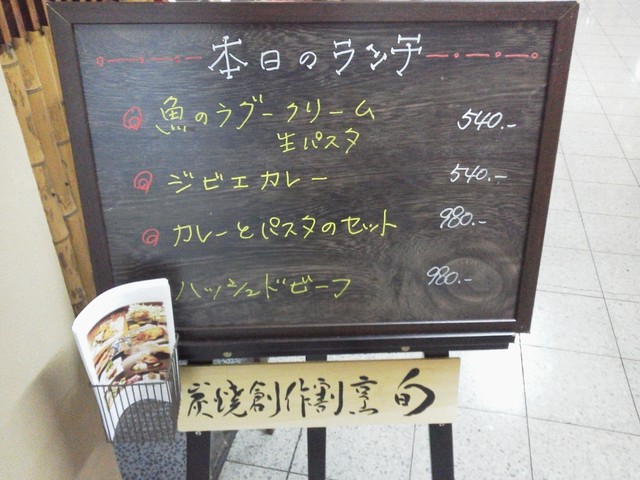 本日のランチ
魚のラグークリーム
生パスタ 540.-
ジビエカレー 540.-
カレーとパスタのセット 980.-
ハッシュドビーフ 980.-
炭焼創作割烹 旬